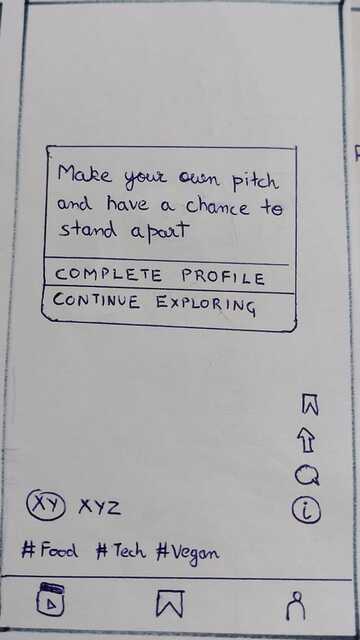 Make your own pitch
and have a chance to
stand apart
COMPLETE PROFILE
CONTINUE EXPLORING
i
XY XYZ
#Food #Tech #Vegan